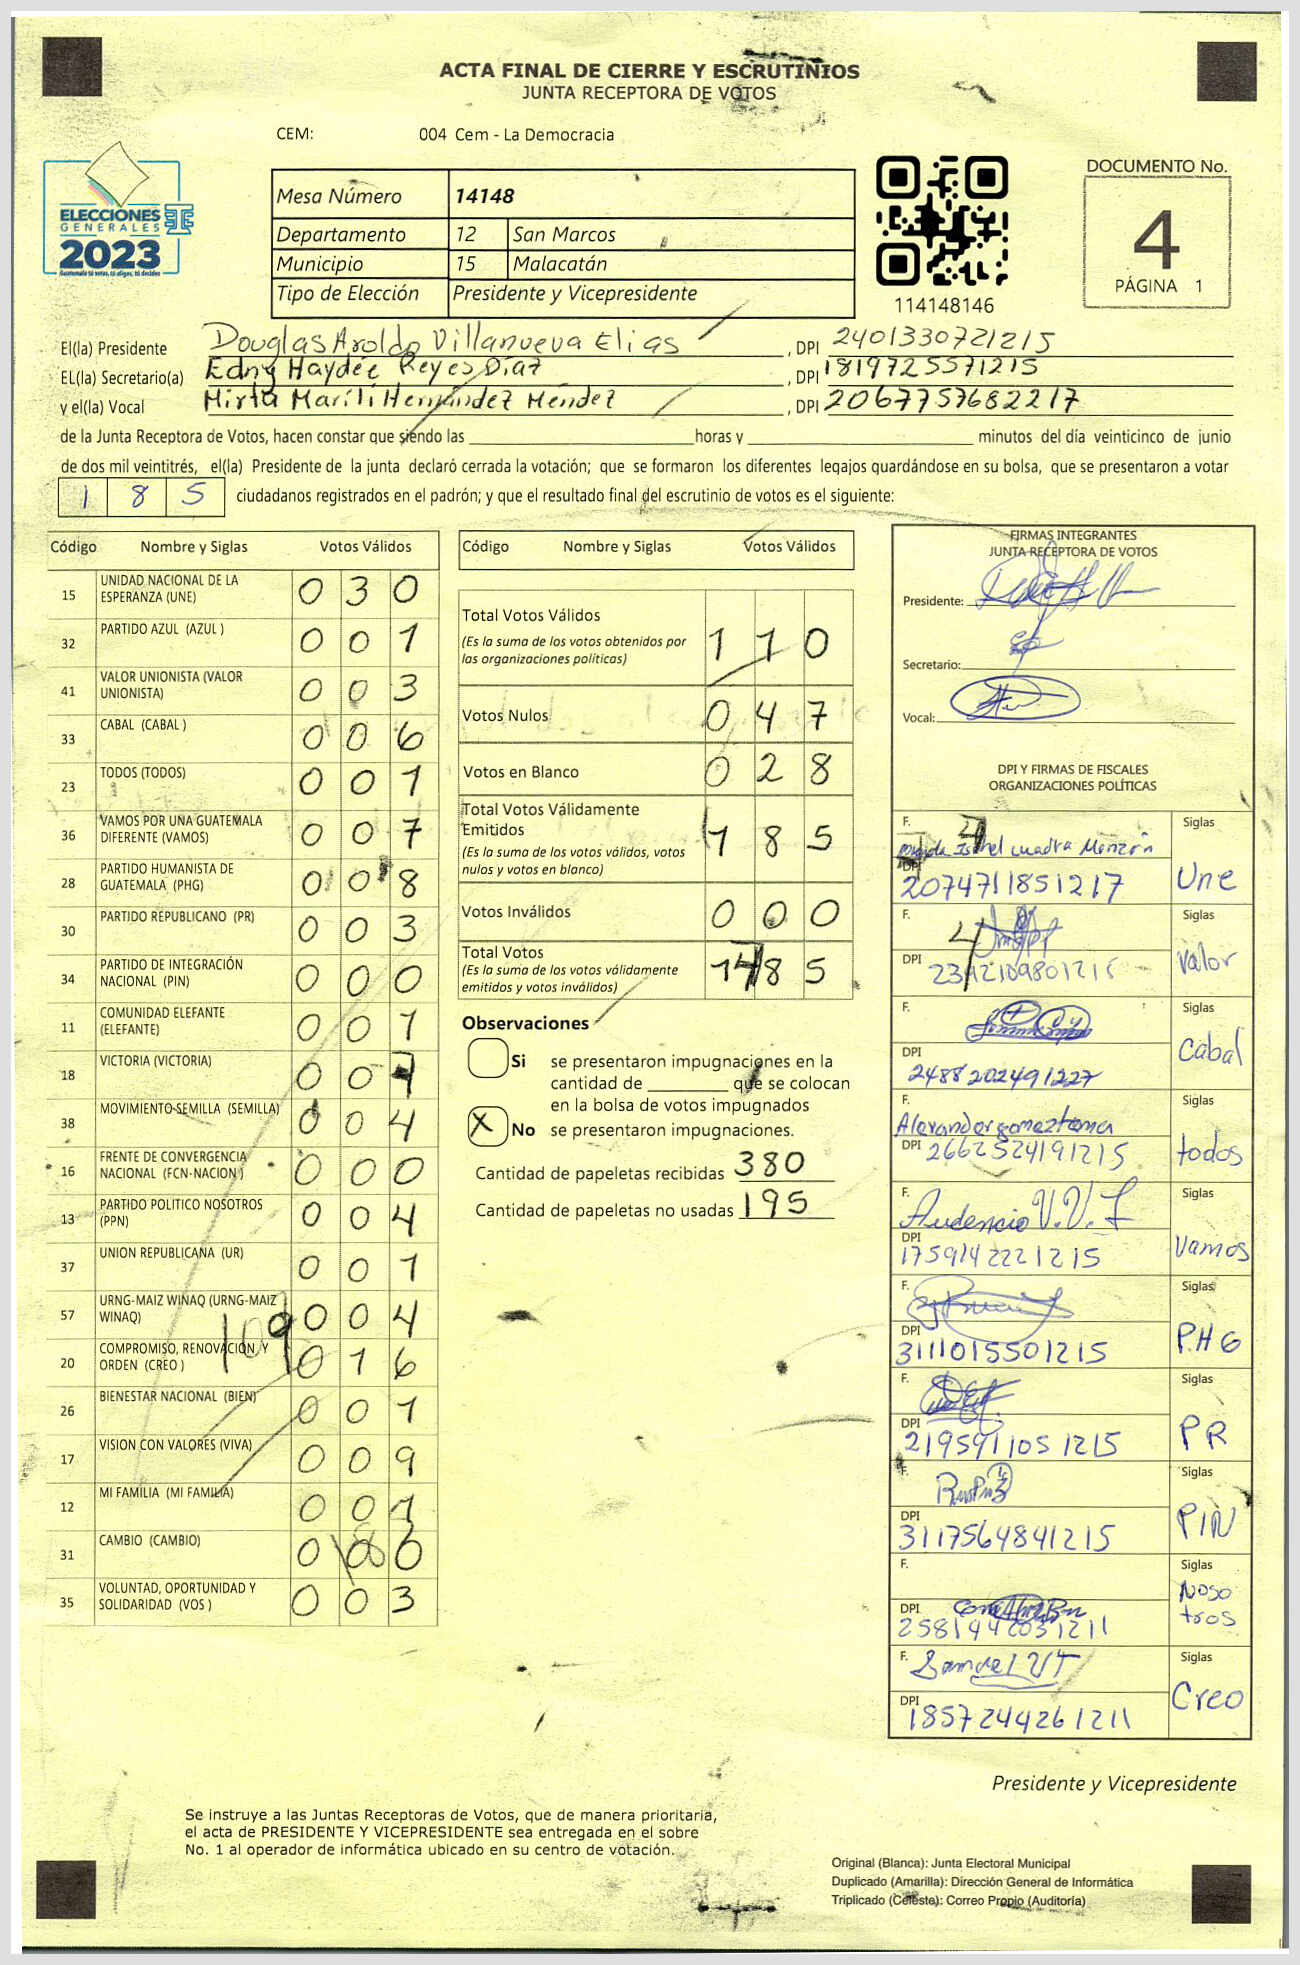 ACTA FINAL DE CIERRE Y ESCRUTINIOS
JUNTA RECEPTORA DE VOTOS
CEM: 004 Cem - La Democracia
ELECCIONES
GENERALES
2023
Guatemala tú votas, tú eliges, tú decides
Mesa Número 14148
Departamento 12 San Marcos
Municipio 15 Malacatán
Tipo de Elección Presidente y Vicepresidente
114148146
DOCUMENTO No.
4
PÁGINA 1
El(la) Presidente Douglas Aroldo Villanueva Elias, DPI 2401330721215
EL(la) Secretario(a) Edny Haydée Reyes Díaz, DPI 1819725571215
y el(la) Vocal Mirta Marili Hernández Méndez, DPI 2067757682217
de la Junta Receptora de Votos, hacen constar que siendo las horas y minutos del día veinticinco de junio
de dos mil veintitrés, el(la) Presidente de la junta declaró cerrada la votación; que se formaron los diferentes legajos guardándose en su bolsa, que se presentaron a votar
185 ciudadanos registrados en el padrón; y que el resultado final del escrutinio de votos es el siguiente:
Código Nombre y Siglas Votos Válidos
15 UNIDAD NACIONAL DE LA ESPERANZA (UNE) 030
32 PARTIDO AZUL (AZUL ) 001
41 VALOR UNIONISTA (VALOR UNIONISTA) 003
33 CABAL (CABAL ) 006
23 TODOS (TODOS) 001
36 VAMOS POR UNA GUATEMALA DIFERENTE (VAMOS) 007
28 PARTIDO HUMANISTA DE GUATEMALA (PHG) 008
30 PARTIDO REPUBLICANO (PR) 003
34 PARTIDO DE INTEGRACIÓN NACIONAL (PIN) 000
11 COMUNIDAD ELEFANTE (ELEFANTE) 001
18 VICTORIA (VICTORIA) 00
38 MOVIMIENTO SEMILLA (SEMILLA) 004
16 FRENTE DE CONVERGENCIA NACIONAL (FCN-NACION ) 000
13 PARTIDO POLITICO NOSOTROS (PPN) 004
37 UNION REPUBLICANA (UR) 001
57 URNG-MAIZ WINAQ (URNG-MAIZ WINAQ) 004
109
20 COMPROMISO, RENOVACIÓN Y ORDEN (CREO ) 016
26 BIENESTAR NACIONAL (BIEN) 001
17 VISION CON VALORES (VIVA) 009
12 MI FAMILIA (MI FAMILIA) 001
31 CAMBIO (CAMBIO) 000
35 VOLUNTAD, OPORTUNIDAD Y SOLIDARIDAD (VOS ) 003
Código Nombre y Siglas Votos Válidos
Total Votos Válidos 110
(Es la suma de los votos obtenidos por
las organizaciones políticas)
Votos Nulos 047
Votos en Blanco 028
Total Votos Válidamente
Emitidos 185
(Es la suma de los votos válidos, votos
nulos y votos en blanco)
Votos Inválidos 000
Total Votos 185
(Es la suma de los votos válidamente
emitidos y votos inválidos)
Observaciones
Si se presentaron impugnaciones en la
cantidad de que se colocan
en la bolsa de votos impugnados
X No se presentaron impugnaciones.
Cantidad de papeletas recibidas 380
Cantidad de papeletas no usadas 195
FIRMAS INTEGRANTES
JUNTA RECEPTORA DE VOTOS
Presidente:
Secretario:
Vocal:
DPI Y FIRMAS DE FISCALES
ORGANIZACIONES POLÍTICAS
F. Isabel cuadra Monzón Siglas
DPI 2074711851217 Une
F. Siglas
DPI Valor
F. Siglas
DPI 2488202491227 Cabal
F. Siglas
DPI 2662524191215 todos
F. Audencio V.V.L Siglas
DPI 1759142221215 Vamos
F. Siglas
DPI 3111015501215 P.H G
F. Siglas
DPI 2195911051215 PR
F. Siglas
DPI 3117564841215 PIN
F. Siglas
DPI Nosotros
F. Samuel Siglas
DPI 1857244261211 Creo
Presidente y Vicepresidente
Se instruye a las Juntas Receptoras de Votos, que de manera prioritaria,
el acta de PRESIDENTE Y VICEPRESIDENTE sea entregada en el sobre
No. 1 al operador de informática ubicado en su centro de votación.
Original (Blanca): Junta Electoral Municipal
Duplicado (Amarilla): Dirección General de Informática
Triplicado (Celeste): Correo Propio (Auditoría)